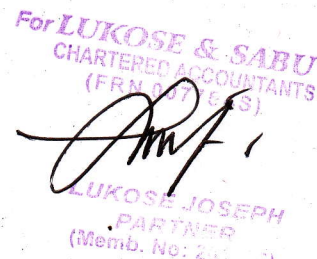 For LUKOSE & SABU
CHARTERED ACCOUNTANTS
(FRN
LUKOSE JOSEPH
PARTNER
(Memb. No: